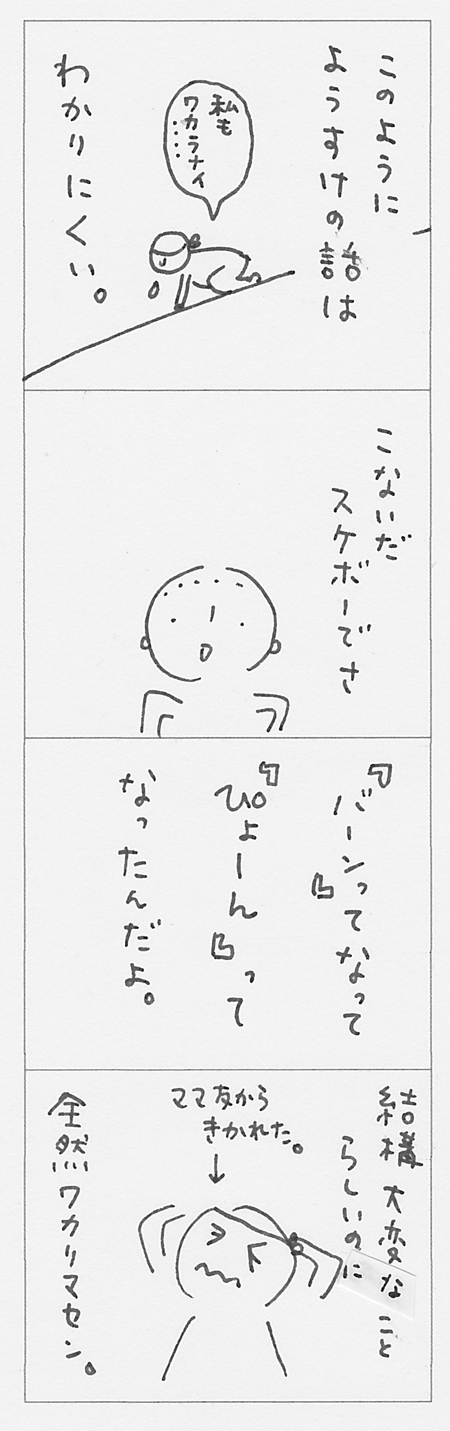 このように
ようすけの話は
私も
ワカラナイ
……
わかりにくい。
こないだ
スケボーでさ
『バーンってなって』
『ぴょーん』って
なったんだよ。
結構大変なこと
らしいのに
ママ友から
きかれた。
↓
全然ワカリマセン。